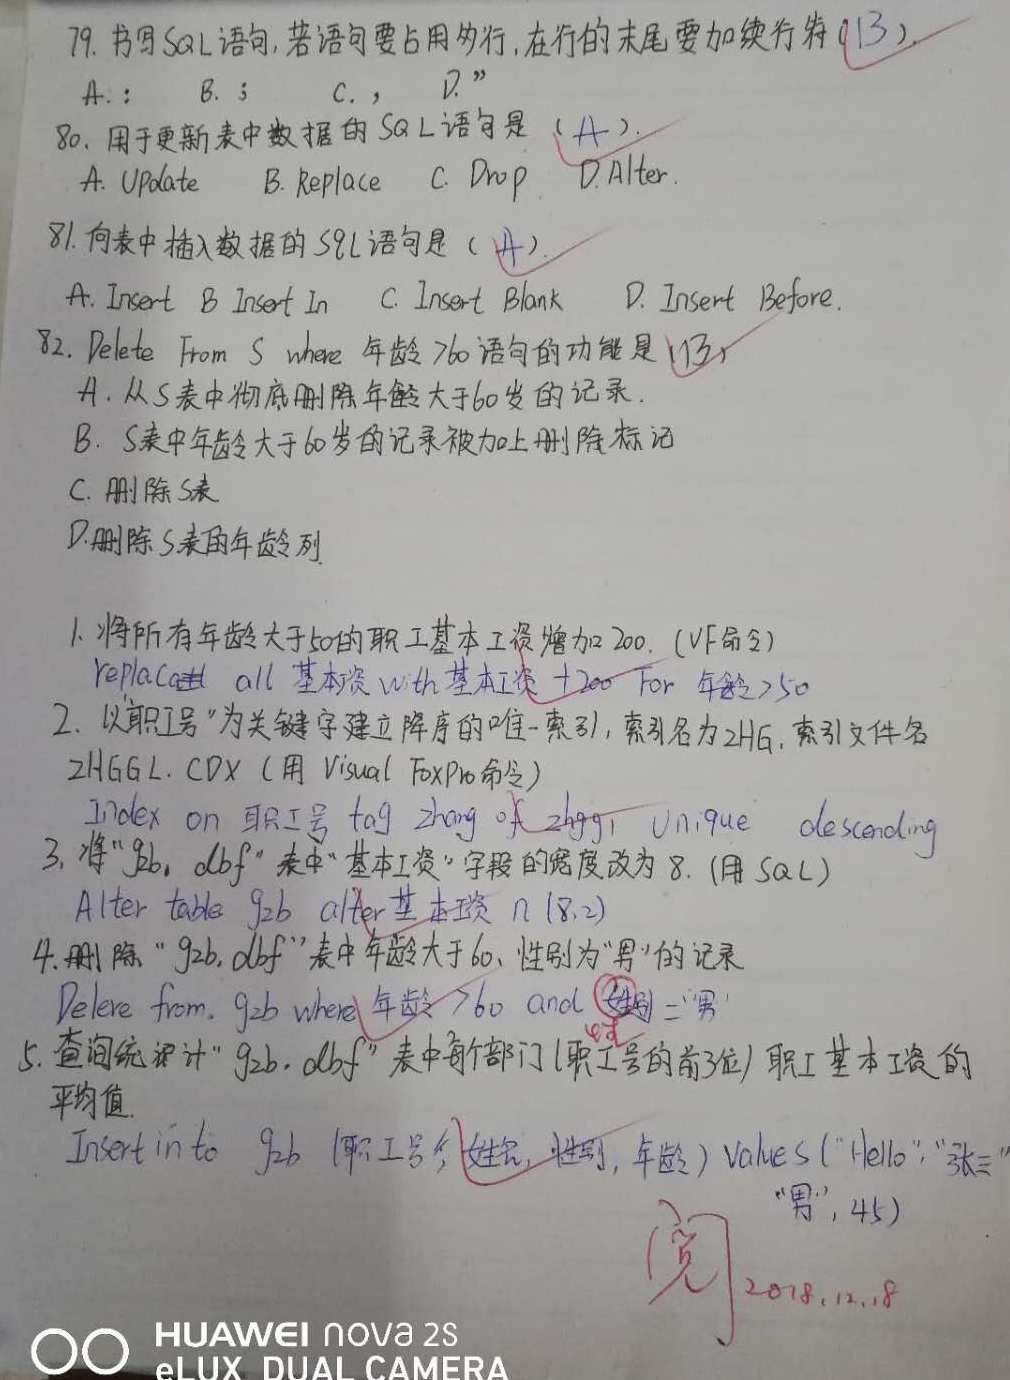 79. 书写SQL语句,若语句要占用多行,在行的末尾要加续行符(B).
A. : B. ; C. , D. "
80. 用于更新表中数据的SQL语句是(A).
A. Update B. Replace C. Drop D. Alter.
81. 向表中插入数据的SQL语句是(A).
A. Insert B Insert In C. Insert Blank D. Insert Before.
82. Delete From S where 年龄>60语句的功能是(B)
A. 从S表中彻底删除年龄大于60岁的记录.
B. S表中年龄大于60岁的记录被加上删除标记
C. 删除S表
D.删除S表的年龄列
1. 将所有年龄大于50的职工基本工资增加200. (VF命令)
all 基本资 with 基本工资 +200 For 年龄>50
2. 以"职工号"为关键字建立降序的唯一索引,索引名为ZHG,索引文件名
ZHGGL.CDX (用 Visual FoxPro命令)
Index on 职工号 tag zhang of zhggl Unique descending
3. 将"gzb. dbf"表中"基本工资"字段的宽度改为8. (用SQL)
Alter table gzb alter 基本工资 n (8,2)
4. 删除"gzb.dbf"表中年龄大于60、性别为"男"的记录
Delere from. gzb where 年龄 >60 and 性别 ='男'
5. 查询统计"gzb.dbf"表中每个部门(职工号的前3位)职工基本工资的
平均值.
Insert in to gzb (职工号, 姓名, 性别, 年龄) values ("Hello","张三"
"男", 45)
阅
2018.12.18
HUAWEI nova 2S
eLUX DUAL CAMERA